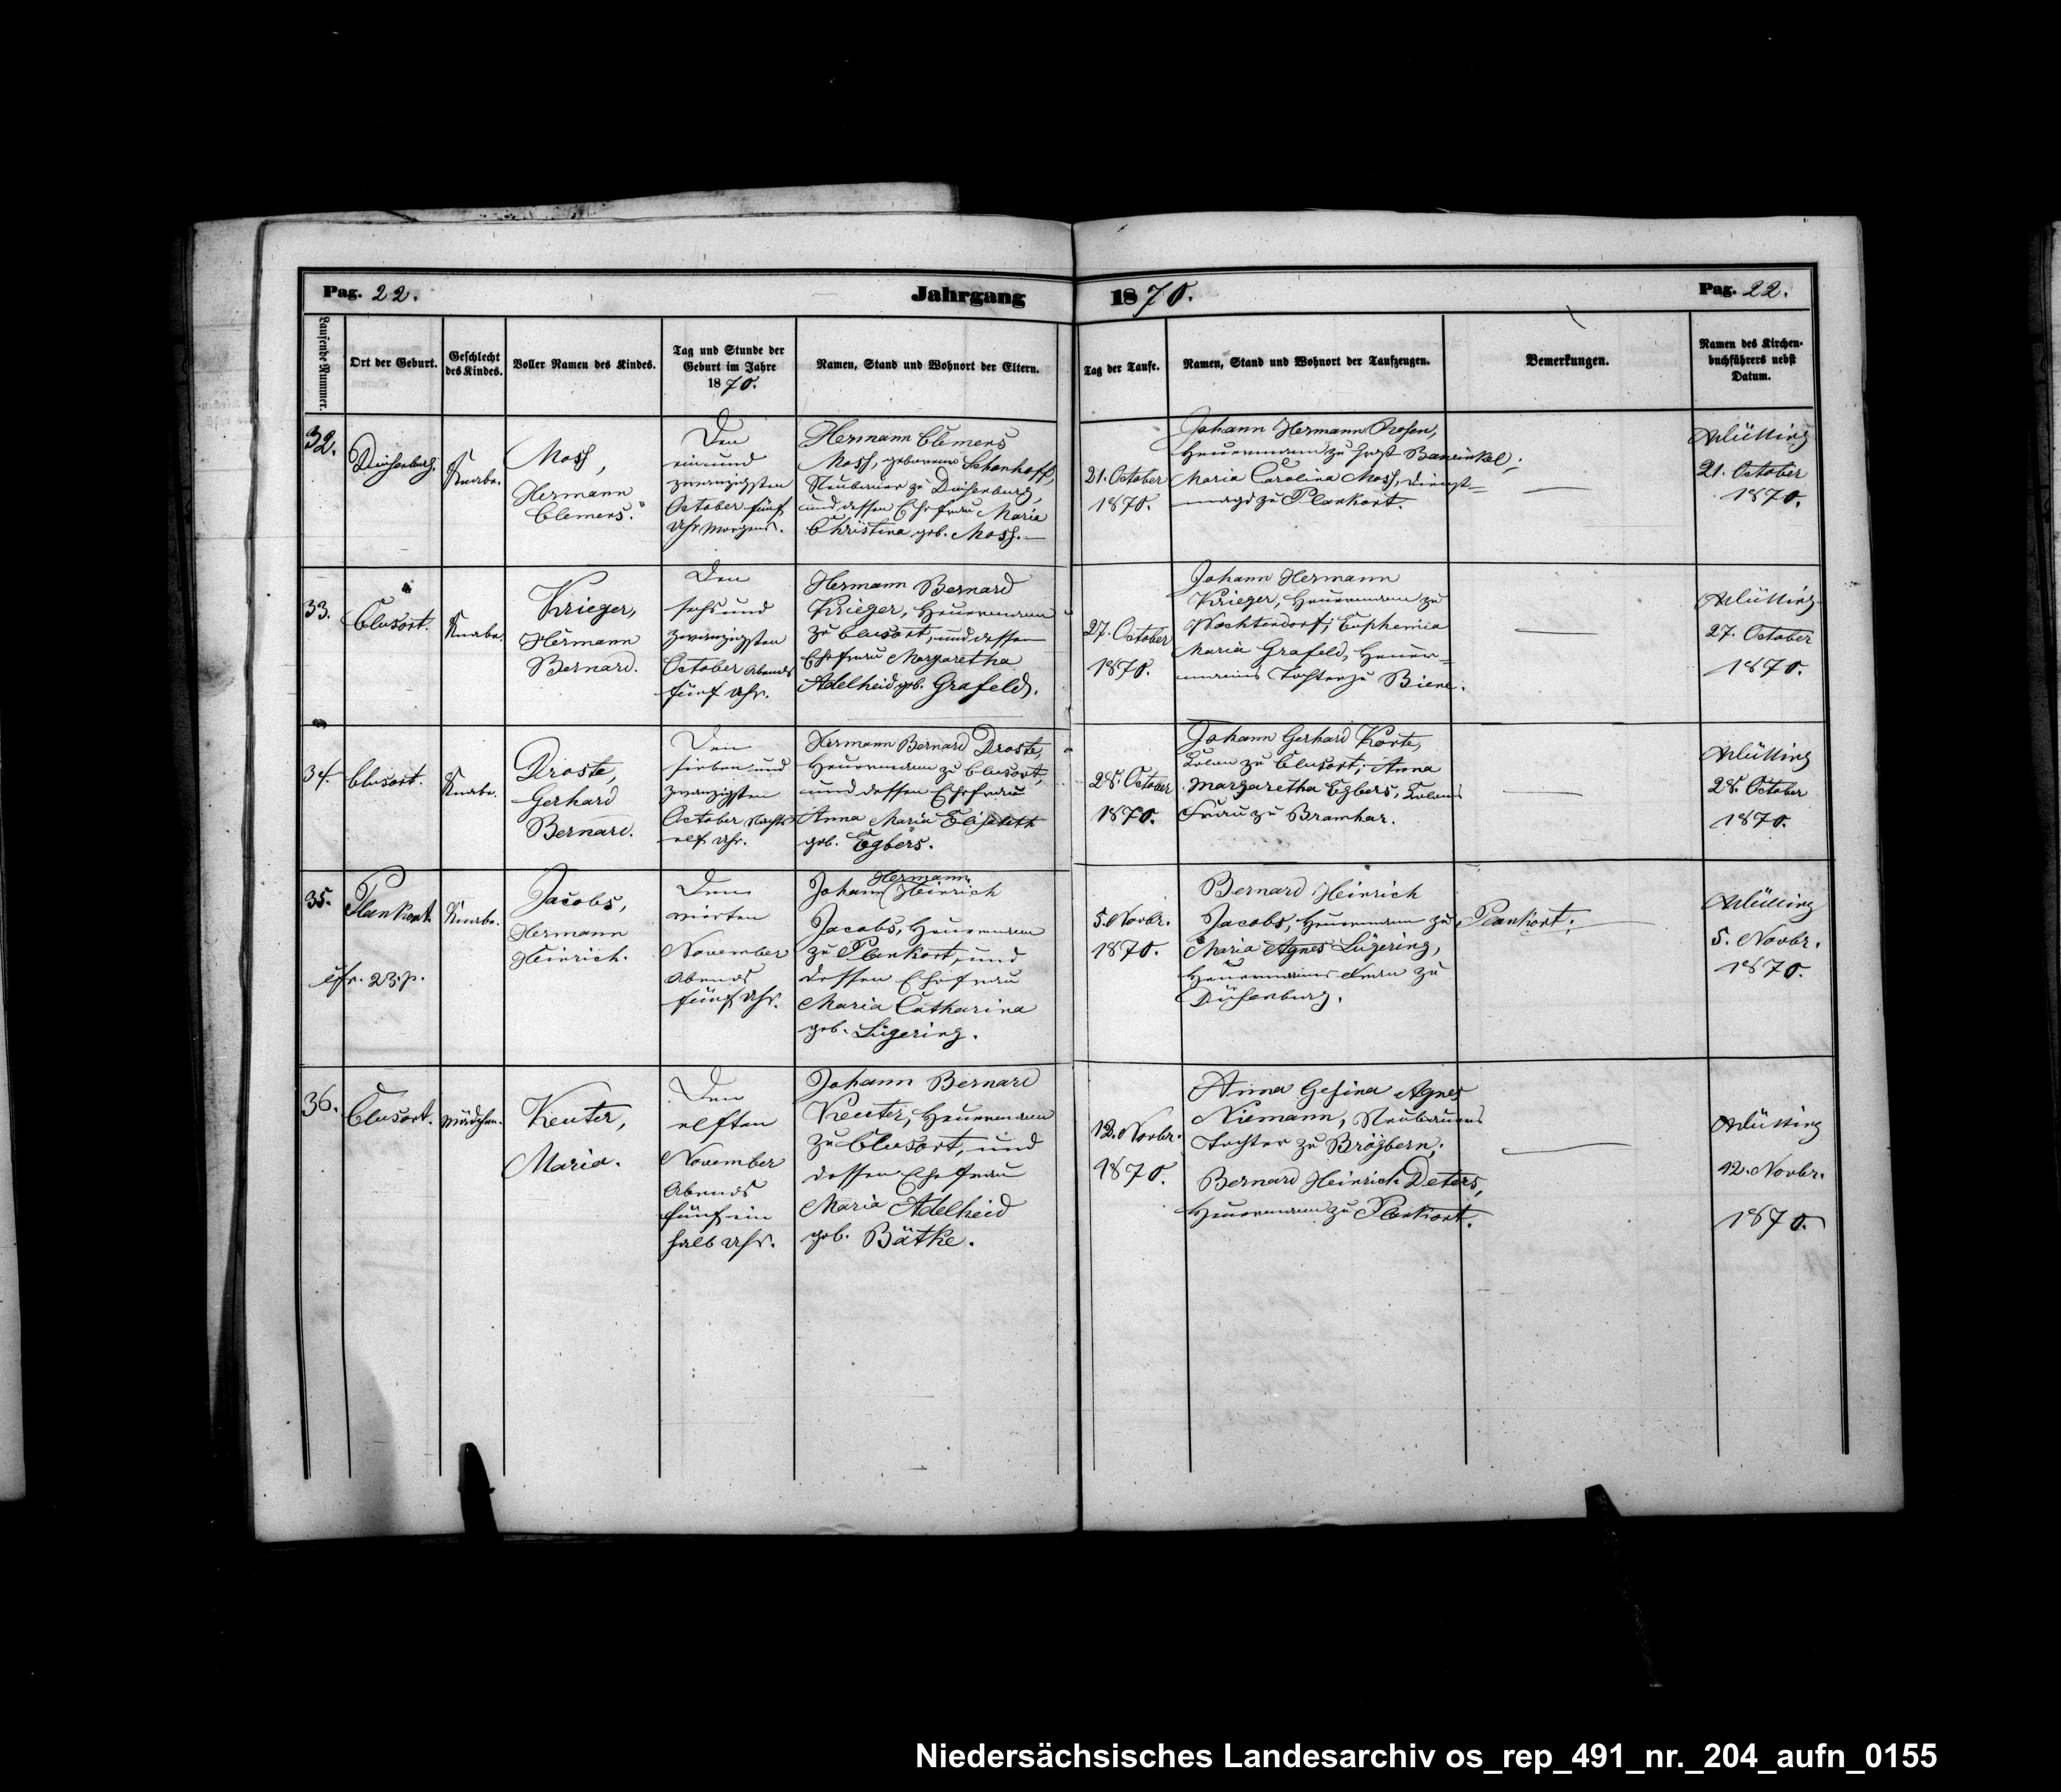 Pag. 22.
Jahrgang 1870.
Pag. 22.
Laufende Nummer.
Ort der Geburt.
Geschlecht des Kindes.
Voller Namen des Kindes.
Tag und Stunde der
Geburt im Jahre
1870.
Namen, Stand und Wohnort der Eltern.
Tag der Taufe.
Namen, Stand und Wohnort der Taufzeugen.
Bemerkungen.
Namen des Kirchen-
buchführers nebst
Datum.
32.
Knabe.
Mosß,
Hermann
Clemens.
Den
ein und
zwanzigsten
October fünf
Uhr Morgens.
Hermann Clemens
Mosß, geborener Schonhoff,
Neubauer zu
und dessen Ehefrau Maria
Christina geb. Mosß.
21. October
1870.
Johann Hermann
Heuermann zu
Maria Carolina Mosß, Dienst=
magd zu Plankort.
21. October
1870.
33.
Clusort.
Knabe.
Krieger,
Hermann
Bernard.
Den
sechs und
zwanzigsten
October Abends
fünf Uhr.
Hermann Bernard
Krieger, Heuermann
zu Clusort, und dessen
Ehefrau Margaretha
Adelheid geb. Grafeld.
27. October
1870.
Johann Hermann
Krieger, Heuermann zu
Wachtendorf; Euphemia
Maria Grafeld, Heuer=
manns Tochter zu Biene.
27. October
1870.
34.
Clusort.
Knabe.
Droste,
Gerhard
Bernard.
Den
sieben und
zwanzigsten
October Nachts
elf Uhr.
Hermann Bernard Droste,
Heuermann zu Clusort,
und dessen Ehefrau
Anna Maria Elisabeth
geb. Egbers.
28. October
1870.
Johann Gerhard Korte,
Colon zu Clusort; Anna
Margaretha Egbers, Colons
Frau zu Bramhar.
28. October
1870.
35.
Plankort.
Knabe.
Jacobs,
Hermann
Heinrich.
Den
vierten
November
Abends
fünf Uhr.
Hermann
Johann Heinrich
Jacobs, Heuermann
zu Plankort, und
dessen Ehefrau
Maria Catharina
geb. Lügering.
5. Novbr.
1870.
Bernard Heinrich
Jacobs, Heuermann zu Plankort;
Maria Agnes Lügering,
Heuermanns Frau zu
5. Novbr.
1870.
36.
Clusort.
Mädchen.
Keuter,
Maria.
Den
elften
November
Abends
fünf ein
halb Uhr.
Johann Bernard
Keuter, Heuermann
zu Clusort, und
dessen Ehefrau
Maria Adelheid
geb. Bätke.
12. Novbr.
1870.
Anna Gesina Agnes
Niemann, Neubauers
Tochter zu Brögbern;
Bernard Heinrich Deters,
Heuermann zu Plankort.
12. Novbr.
1870.
Niedersächsisches Landesarchiv os_rep_491_nr._204_aufn_0155